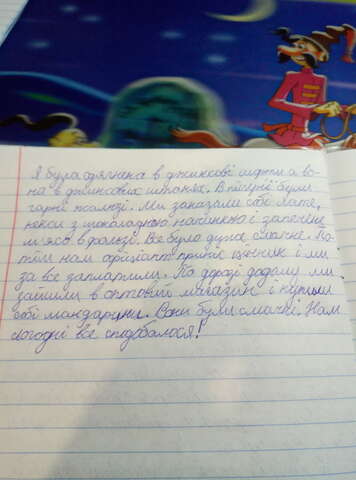 Я була одягнена в джинсові шорти а во-
на в джинсових штанях. В піцерії були
гарні жалюзі. Ми заказали собі лате,
кекси з шоколадною начинкою і запечені
м'ясо в фользі. Все було дуже смачне. По-
тім нам офіціант приніс цінник і ми
за все заплатили. По дорозі додому ми
зайшли в оптовий магазин і купили
собі мандарини. Вони були смачні. Нам
сьогодні все сподобалося!